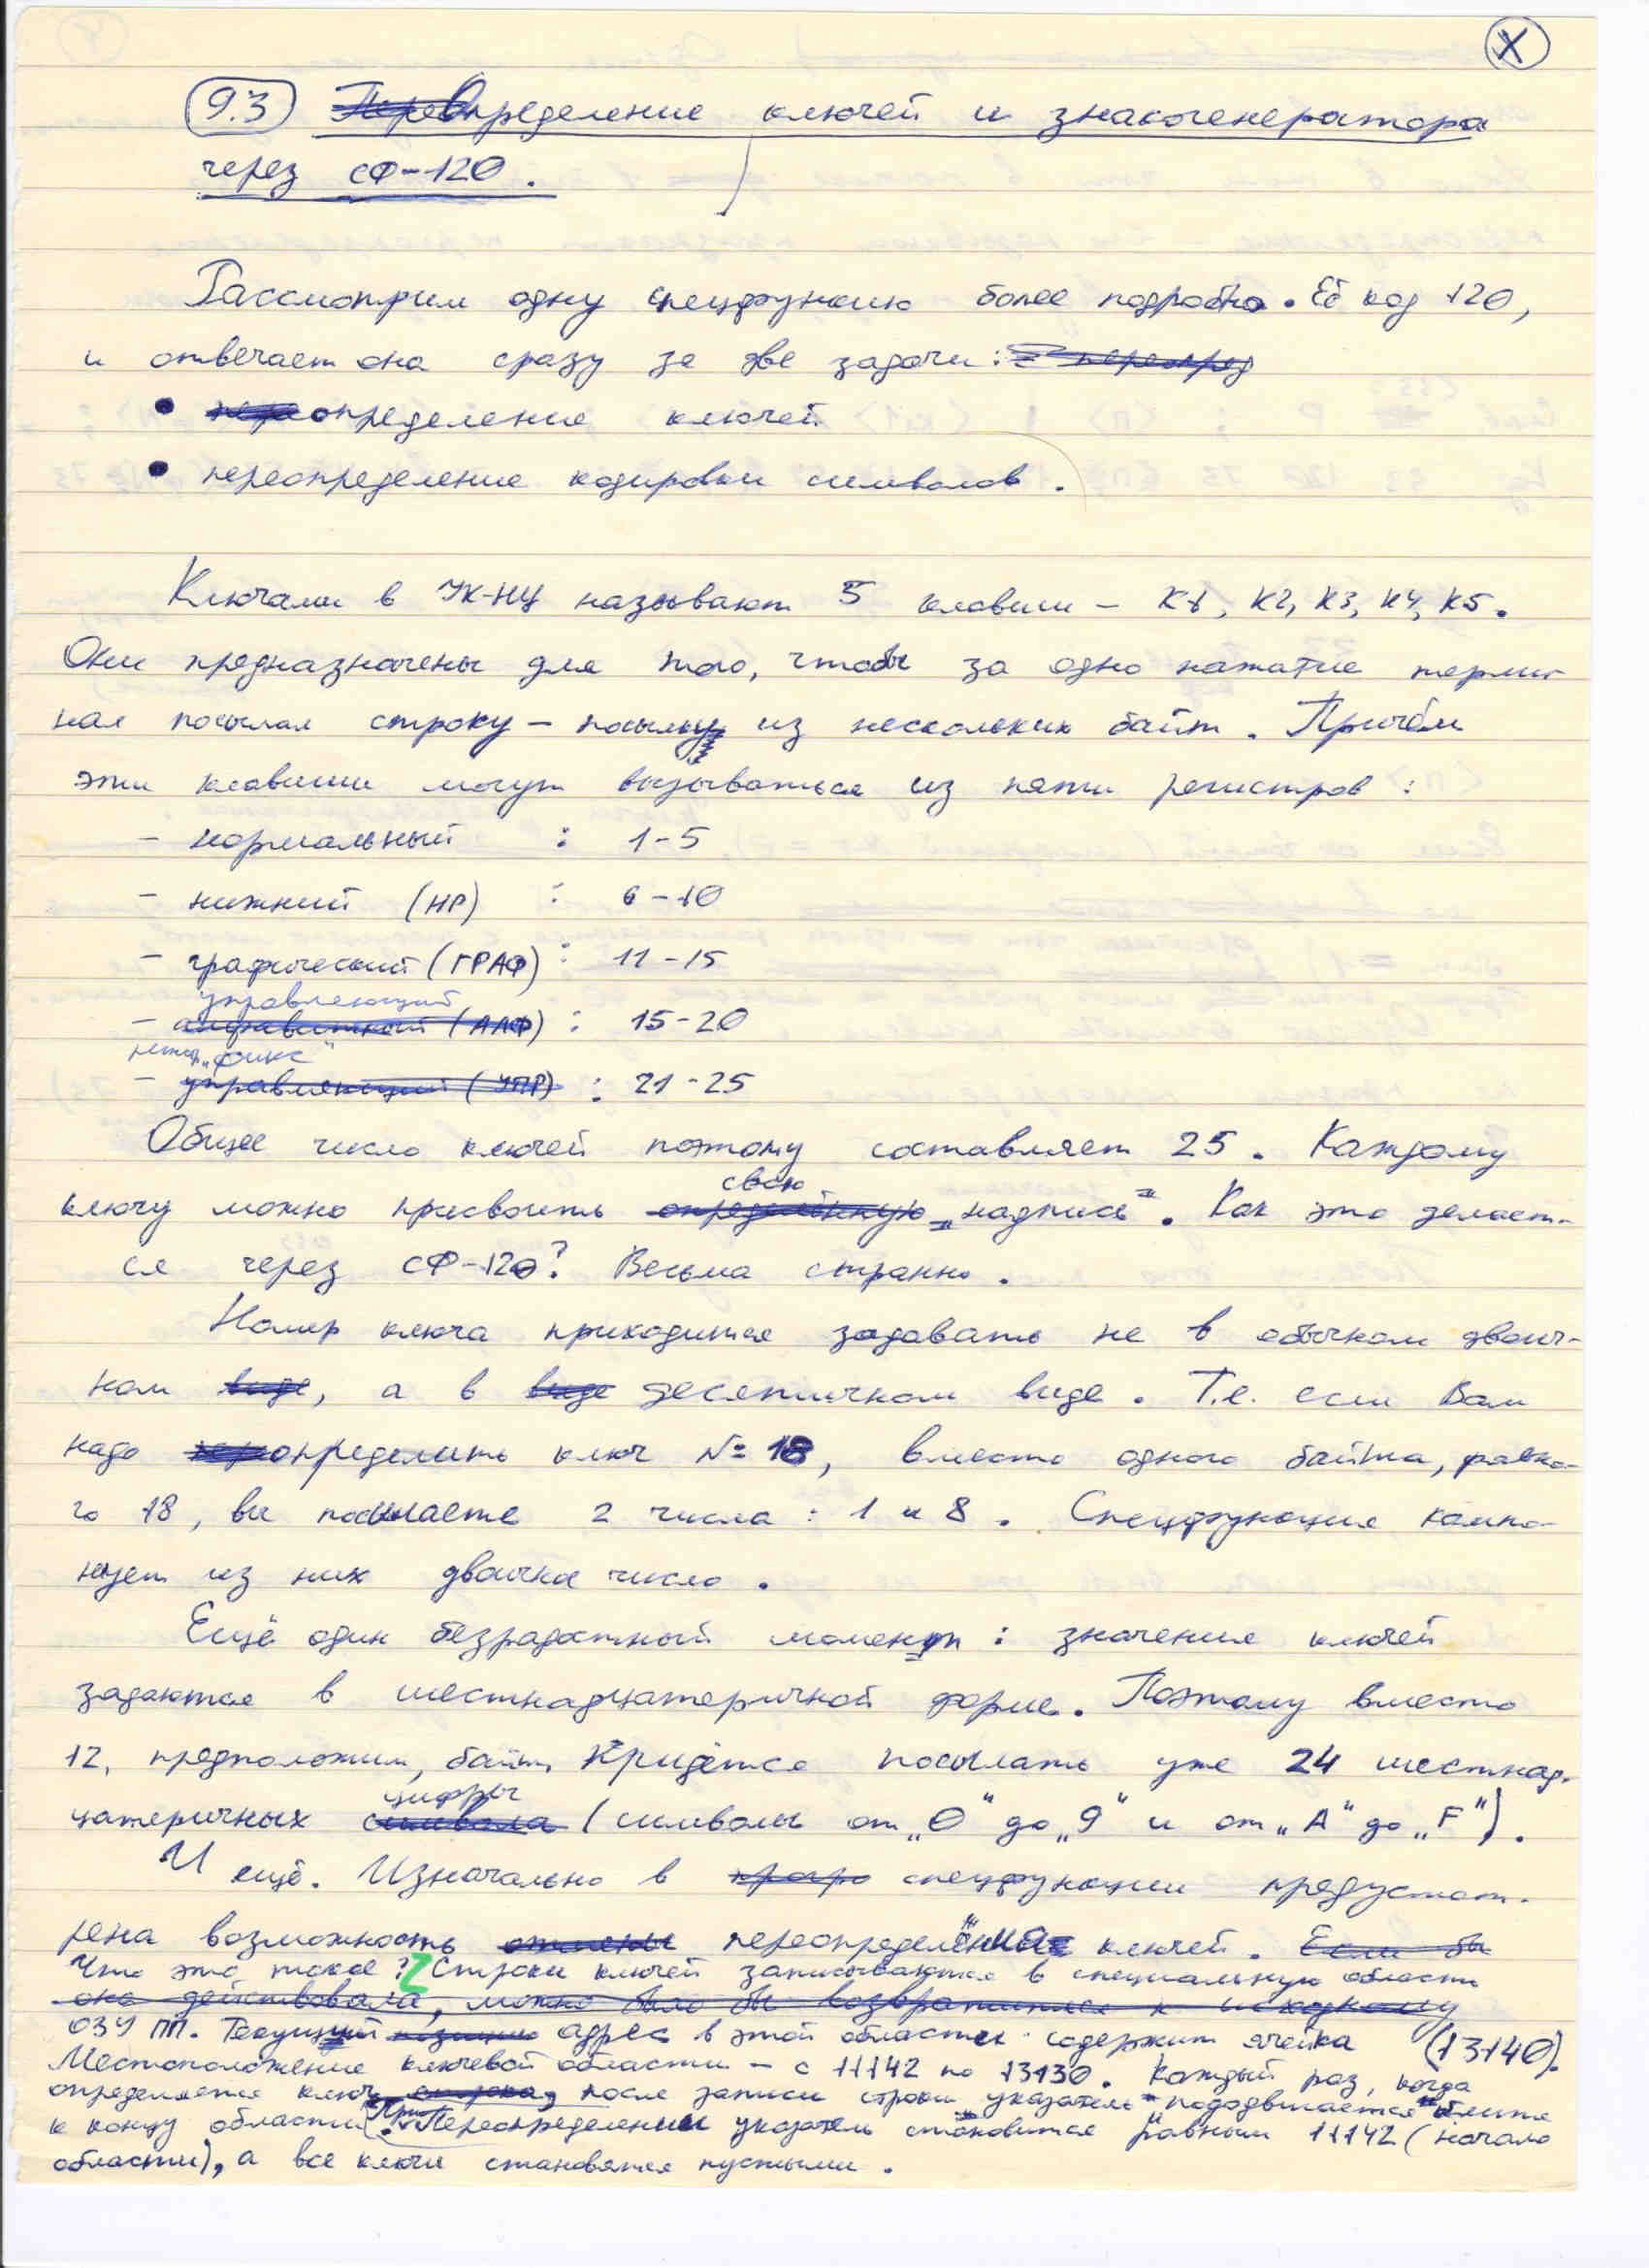 X
9.3 Определение ключей и знакогенератора
через СФ-120.
Рассмотрим одну спецфункцию более подробно. Её код 120,
и отвечает она сразу за две задачи:
• определение ключей
• переопределение кодировки символов.
Ключами в УК-НЦ называют 5 клавиш – К1, К2, К3, К4, К5.
Они предназначены для того, чтобы за одно нажатие терми-
нал посылал строку – посылку из нескольких байт. Причём
эти клавиши могут вызываться из пяти регистров:
– нормальный : 1-5
– нижний (НР) : 6-10
– графический (ГРАФ) : 11-15
управляющий
– алфавитный (АЛФ) : 15-20
„фикс“
– управляющий (УПР) : 21-25
Общее число ключей поэтому составляет 25. Каждому
свою
ключу можно присвоить определённую „надпись“. Как это делает-
ся через СФ-120? Весьма странно.
Номер ключа приходится задавать не в обычном двоич-
ном виде, а в виде десятичном виде. Т.е. если Вам
надо определить ключ №18, вместо одного байта, равно-
го 18, вы посылаете 2 числа: 1 и 8. Спецфункция компо-
нует из них двоичное число.
Ещё один безрадостный момент: значение ключей
задаются в шестнадцатеричной форме. Поэтому вместо
12, предположим, байт придётся посылать уже 24 шестнад-
цифры
цатеричных символа (символы от „0“ до „9“ и от „А“ до „F“).
И ещё. Изначально в спецфункции предусмот-
рена возможность отмены „переопределения“ ключей. Если бы
Что это такое? Строки ключей записываются в специальную область
она действовала, можно было бы возвратиться к исходному
ОЗУ ПП. Текущий позицию адрес в этой области содержит ячейка (13140).
Местоположение ключевой области – с 11142 по 13130. Каждый раз, когда
определяется ключ, после записи строки указатель „пододвигается“ ближе
к концу области. При „Переопределении“ указатель становится равным 11142 (начало
области), а все ключи становятся пустыми.